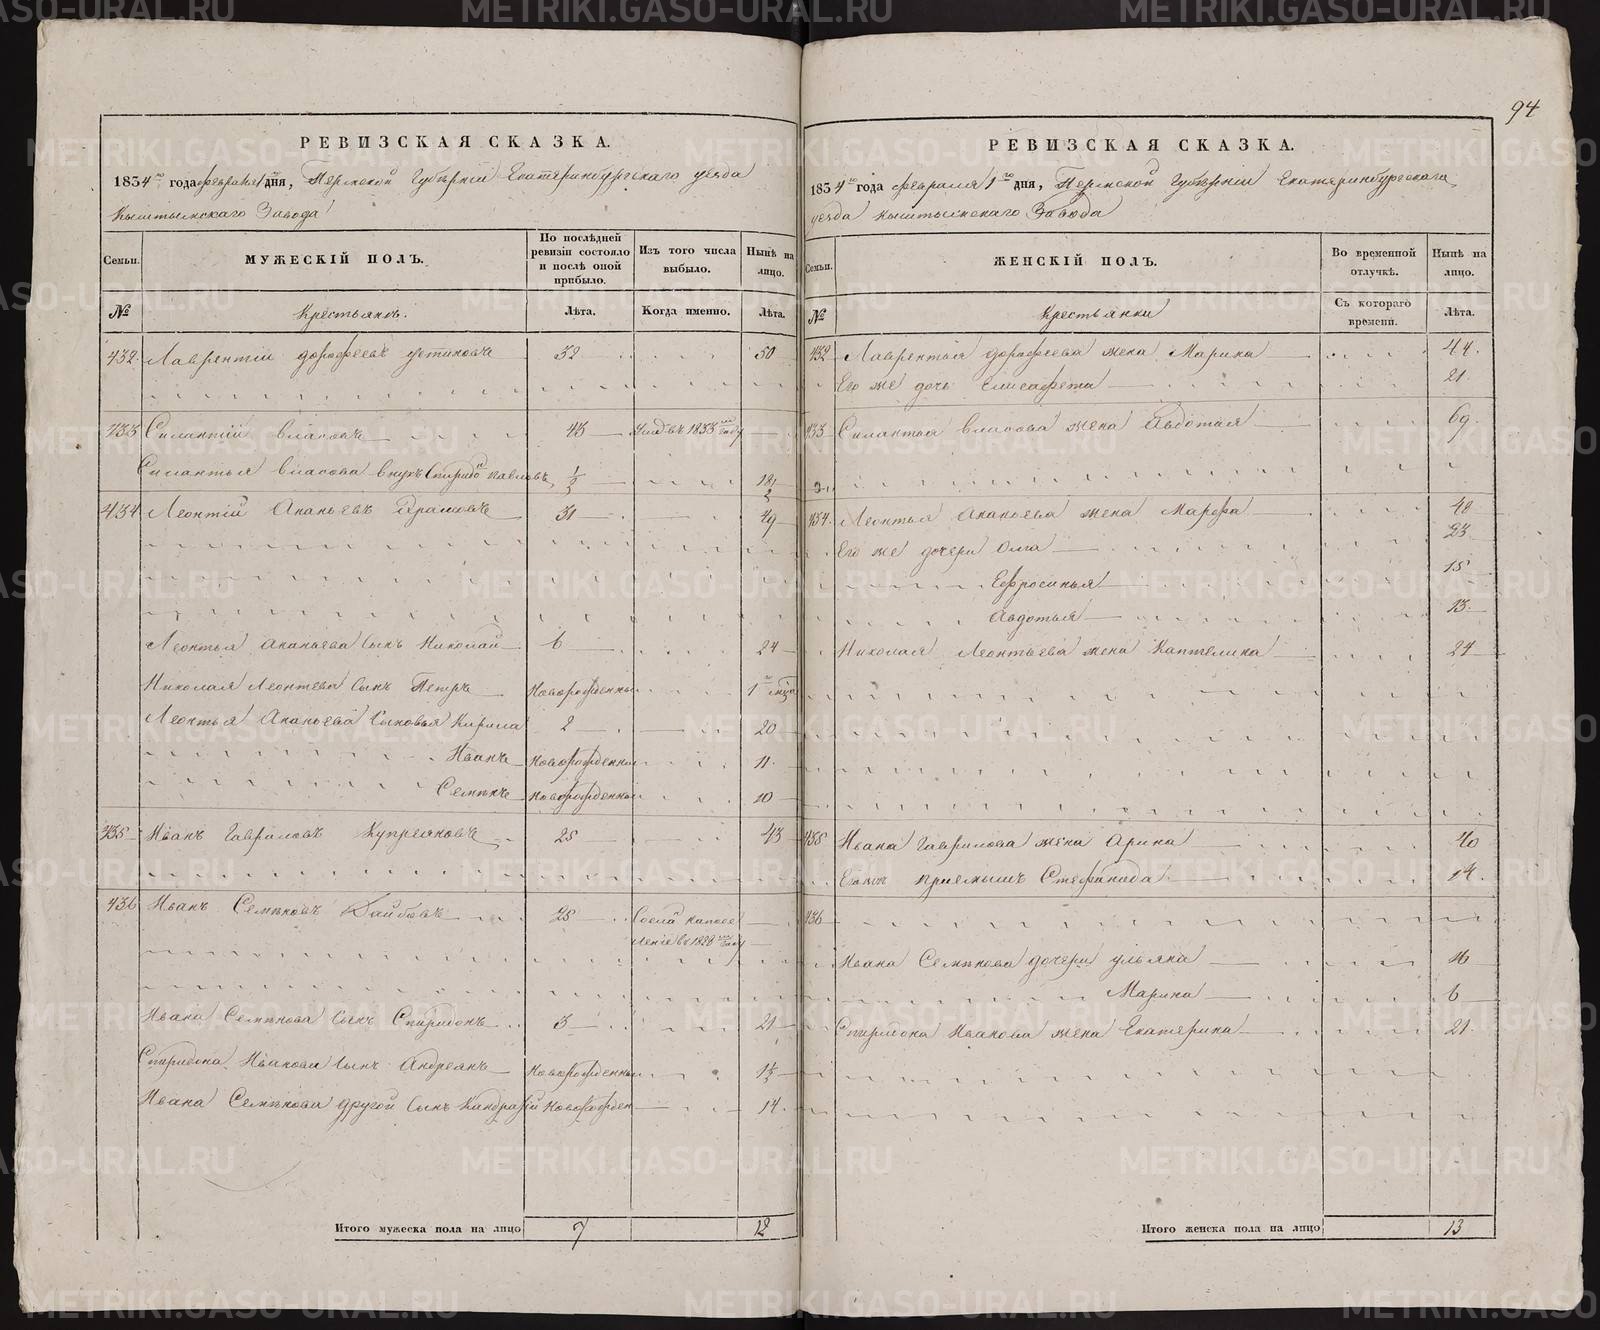 94
РЕВИЗСКАЯ СКАЗКА.
1834 го года февраля 1 дня, Пермской Губерніи Екатеринбургскаго уезда
Кыштымскаго Завода
Семьи.
МУЖЕСКІЙ ПОЛЪ.
По послѣдней ревизіи состояло и послѣ оной прибыло.
Изъ того числа выбыло.
Нынѣ на лицо.
№
Крестьянъ.
Лѣта.
Когда именно.
Лѣта.
432 Лаврентій дорофеевъ устиновъ 32 50
433 Силантій власовъ 43 Умре въ 1833 году
Силантья власова внукъ Спиридонъ павловъ 1/2 18 1/2
434 Леонтій Ананьевъ 31 49
Леонтья Ананьева сынъ Николай 6 24
Николая Леонтева сынъ Петръ Новорожденный 1
Леонтья Ананьева сыновья Кирила 2 20
Иванъ новорожденный 11
Семенъ новорожденный 10
435 Иванъ Гавриловъ Купреяновъ 25 43
436 Иванъ Семеновъ 25 Сосланъ на поселеніе въ 1828 году
Ивана Семенова сынъ Спиридонъ 3 21
Спиридона Иванова сынъ Андреянъ Новорожденный
Ивана Семенова другой сынъ Кандратій Новорожден 14
Итого мужеска пола на лицо 7 12
РЕВИЗСКАЯ СКАЗКА.
1834 го года февраля 1 го дня, Пермской Губерніи Екатеринбургскаго
уезда Кыштымскаго Завода
Семьи.
ЖЕНСКІЙ ПОЛЪ.
Во временной отлучкѣ.
Нынѣ на лицо.
№
Крестьянки
Съ котораго времени.
Лѣта.
432 Лаврентья дорофеева жена Марина 44
Его же дочь Елисафета 21
433 Силантья власова жена Авдотья 69
434 Леонтья Ананьева жена Марфа 48
Его же дочери Олга 23
Ефросинья 15
Авдотья 13
Николая Леонтьева жена Каптелина 24
435 Ивана Гаврилова жена Арина 40
Его же приемышъ Стефанида 14
436
Ивана Семенова дочери ульяна 16
Марина 6
Спиридона Иванова жена Екатерина 21
Итого женска пола на лицо 13
METRIKI.GASO-URAL.RU